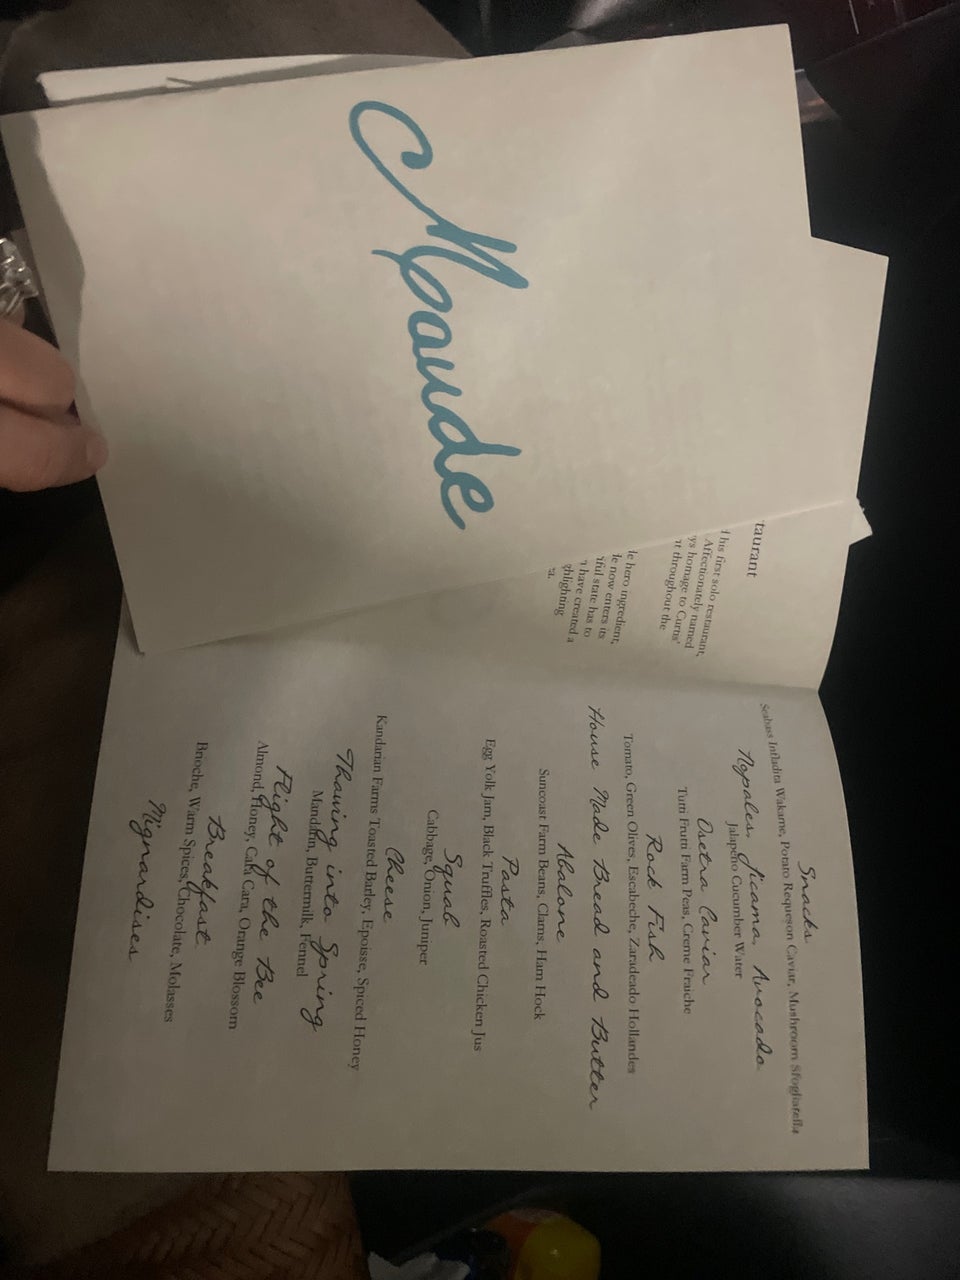 Maude
taurant
his first solo restaurant,
Affectionately named
ys homage to Curtis'
throughout the
le hero ingredient,
le now enters its
iful state has to
have created a
ghlighting
Snacks
Seabass Infladita Wakame, Potato Requeson Caviar, Mushroom Sfogliatella
Nopales, Jicama, Avocado
Jalapeño Cucumber Water
Osetra Caviar
Tutti Frutti Farm Peas, Creme Fraiche
Rock Fish
Tomato, Green Olives, Escabeche, Zaradeado Hollandes
House Made Bread and Butter
Abalone
Suncoast Farm Beans, Clams, Ham Hock
Pasta
Egg Yolk Jam, Black Truffles, Roasted Chicken Jus
Squab
Cabbage, Onion, Juniper
Cheese
Kandarian Farms Toasted Barley, Epoisse, Spiced Honey
Thawing into Spring
Mandarin, Buttermilk, Fennel
Flight of the Bee
Almond, Honey, Cara Cara, Orange Blossom
Breakfast
Brioche, Warm Spices, Chocolate, Molasses
Mignardises